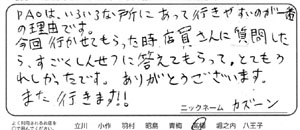 PAOは、いろいろな所にあって行きやすいのが一番
の理由です。
今回行かせてもらった時店員さんに質問した
ら、すごくしんせつに答えてもらって、とてもう
れしかったです。ありがとうございます。
また行きます!!
ニックネーム カズーン
よく利用されるお店を
○で囲んでください。
立川 小作 羽村 昭島 青梅 高幡 堀之内 八王子